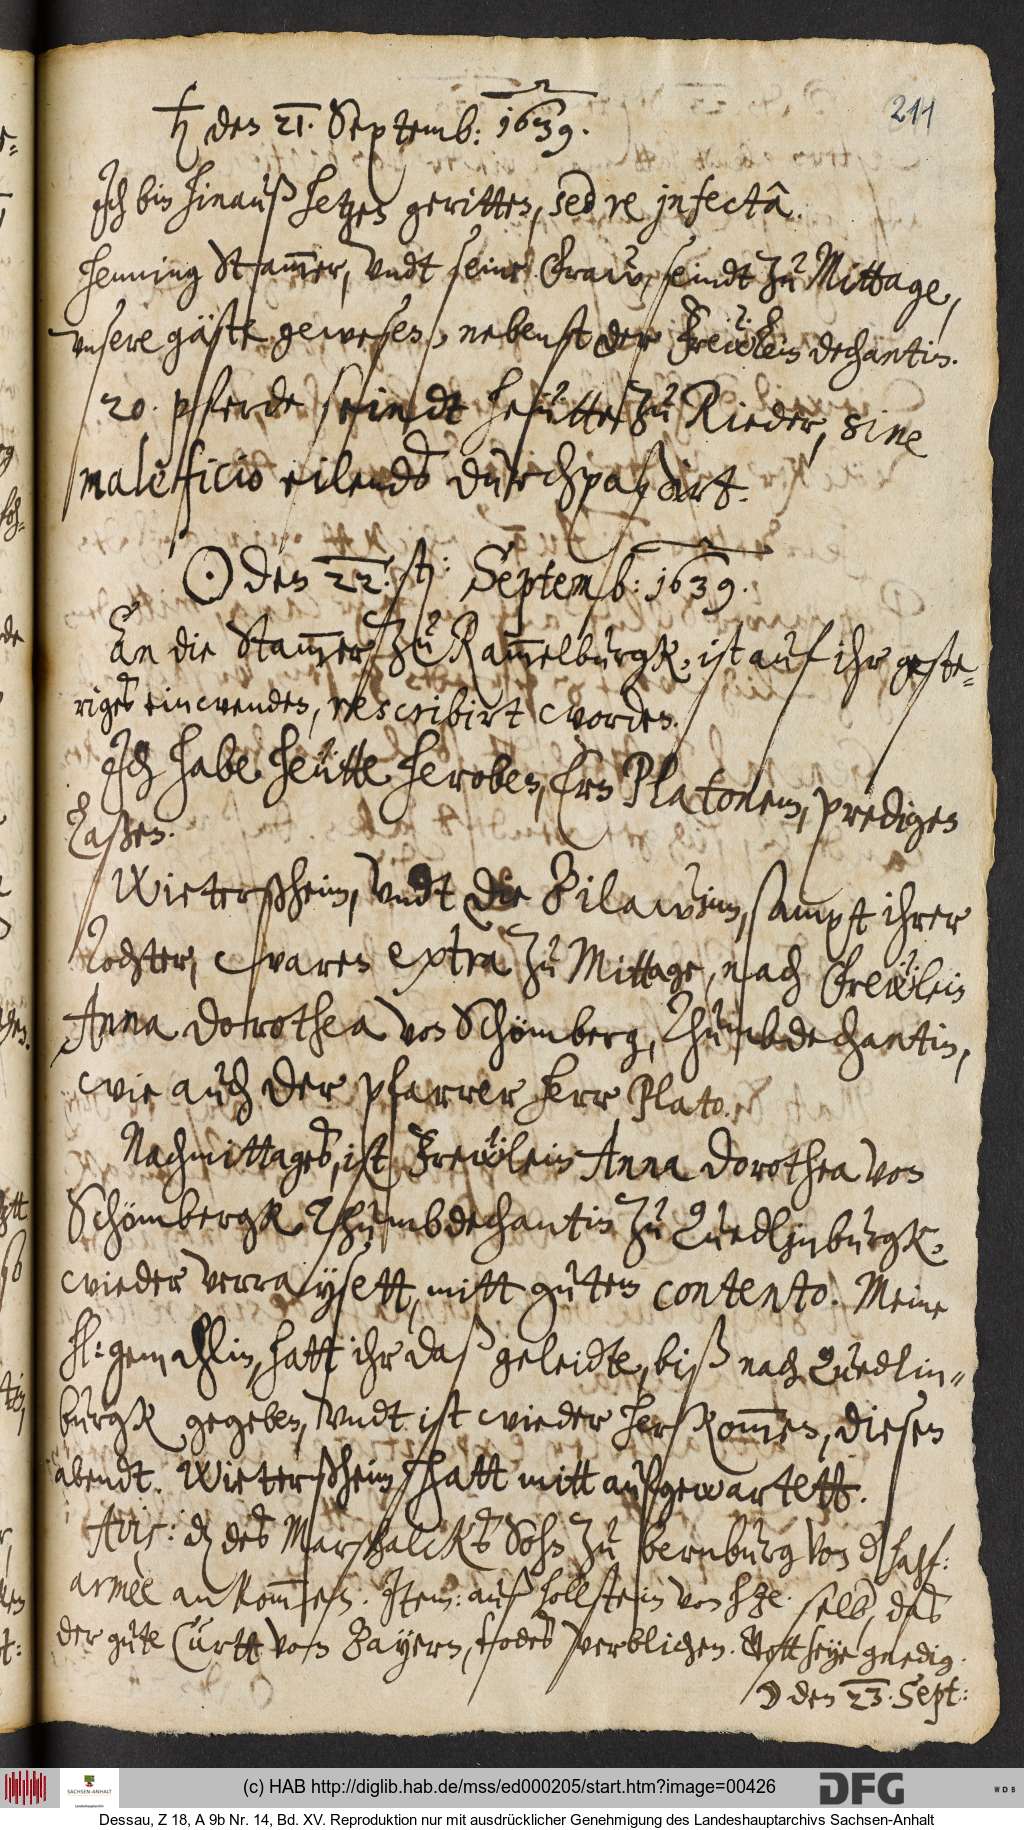 211
♄ den 21. Septemb: 1639.
Jch bin hinauß hetzen geritten, sed re jnfectâ.
Henning Stam̄er, vndt seine Fraw, seindt zu Mittage,
vnsere gäste gewesen, nebenst der Frewlein dechantin.
20. pferde seindt heütte zu Rieder, sine
maleficio eilends durchpassirt.
☉ den 22. sten: Septemb: 1639.
An die Stam̄er zu Ram̄elburgk, ist auf ihr geste=
riges einwenden, rescribirt worden.
Jch habe heütte heroben, Ern Platonem, predigen
laßen.
Wietersheim, vndt die Bilawinn, sampt ihrer
Tochter, waren extra zu Mittage, nach Frewlein
Anna Dorothea von Schömberg, Thumbdechantin,
wie auch der pfarrer Herr Plato.
Nachmittages, ist Frewlein Anna Dorothea von
Schömbergk Thumbdechantin zu Quedlinburgk,
wieder verraysett, mitt gutem contento. Meine
fl: gemahlin, hatt ihr daß geleidte, biß nach Quedlin=
burgk gegeben, vndt ist wieder herkom̄en, diesen
abendt. Wietersheim hatt mitt aufgewartett.
Avis: daß des Marschalcks Sohn zu Bernburg von d
armèe ankom̄en. Jtem: auß hollstein von das
der gute Curtt von Bayern, todes verblichen. Gott seye gnedig.
☽ den 23. Sept:
(c) HAB http://diglib.hab.de/mss/ed000205/start.htm?image=00426
SACHSEN-ANHALT
DFG
WDB
Dessau, Z 18, A 9b Nr. 14, Bd. XV. Reproduktion nur mit ausdrücklicher Genehmigung des Landeshauptarchivs Sachsen-Anhalt